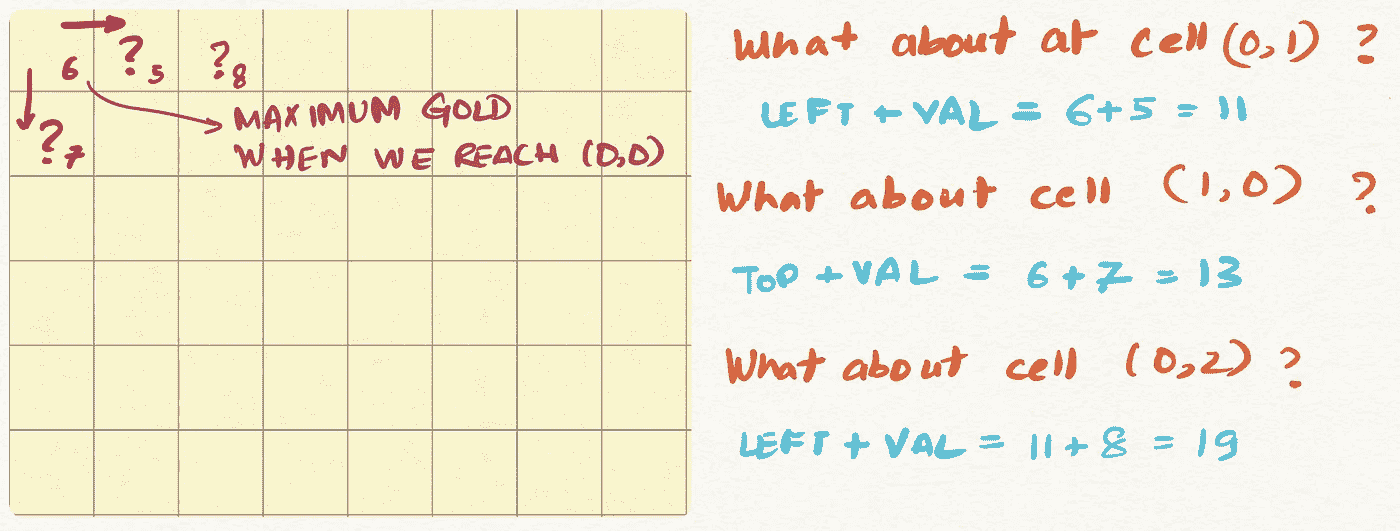 6 ? 5 ? 8
MAXIMUM GOLD
? 7 WHEN WE REACH (0,0)
What about at cell (0,1) ?
LEFT + VAL = 6+5 = 11
What about cell (1,0) ?
TOP + VAL = 6+7 = 13
What about cell (0,2) ?
LEFT + VAL = 11+8 = 19